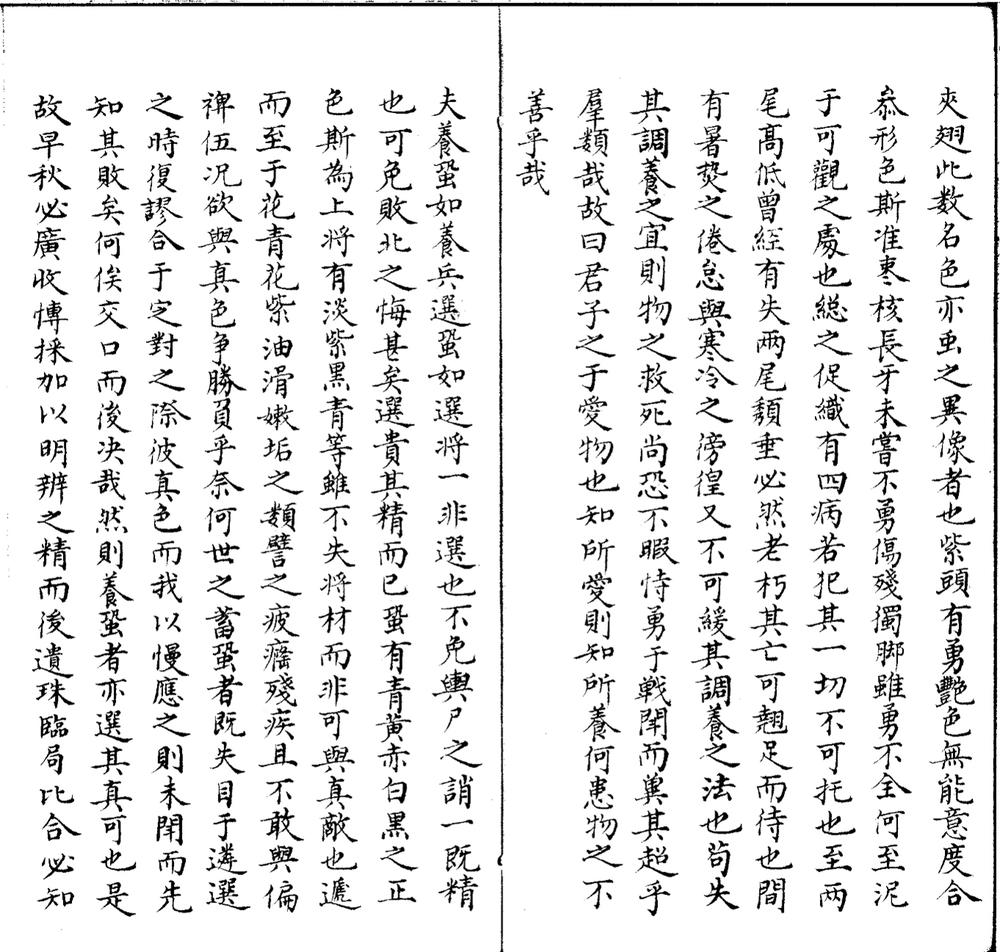 夾翅此数名色亦虫之異像者也紫頭有勇艷色無能意度合
叅形色斯准棗核長牙未嘗不勇傷殘獨脚雖勇不全何至泥
于可觀之處也緫之促織有四病若犯其一切不可托也至两
尾髙低曾經有失两尾頽垂必然老朽其亡可翹足而待也間
有暑焚之倦怠與寒冷之徬徨又不可緩其調養之法也茍失
其調養之宜則物之救死尚恐不暇恃勇于戦閗而兾其超乎
羣類哉故曰君子之于愛物也知所愛則知所養何患物之不
善乎哉
夫養蛩如養兵選蛩如選将一非選也不免輿尸之誚一既精
也可免敗北之悔甚矣選貴其精而已蛩有青黄赤白黒之正
色斯為上将有淡紫黒青等雖不失将材而非可與真敵也遞
而至于花青花紫油滑嫩垢之類譬之疲癃殘疾且不敢與偏
禆伍况欲與真色争勝負乎奈何世之蓄蛩者既失目于遴選
之時復謬合于定對之際彼真色而我以慢應之則未閗而先
知其敗矣何俟交口而後决哉然則養蛩者亦選其真可也是
故早秋必廣收愽採加以明辨之精而後遺珠臨局比合必知